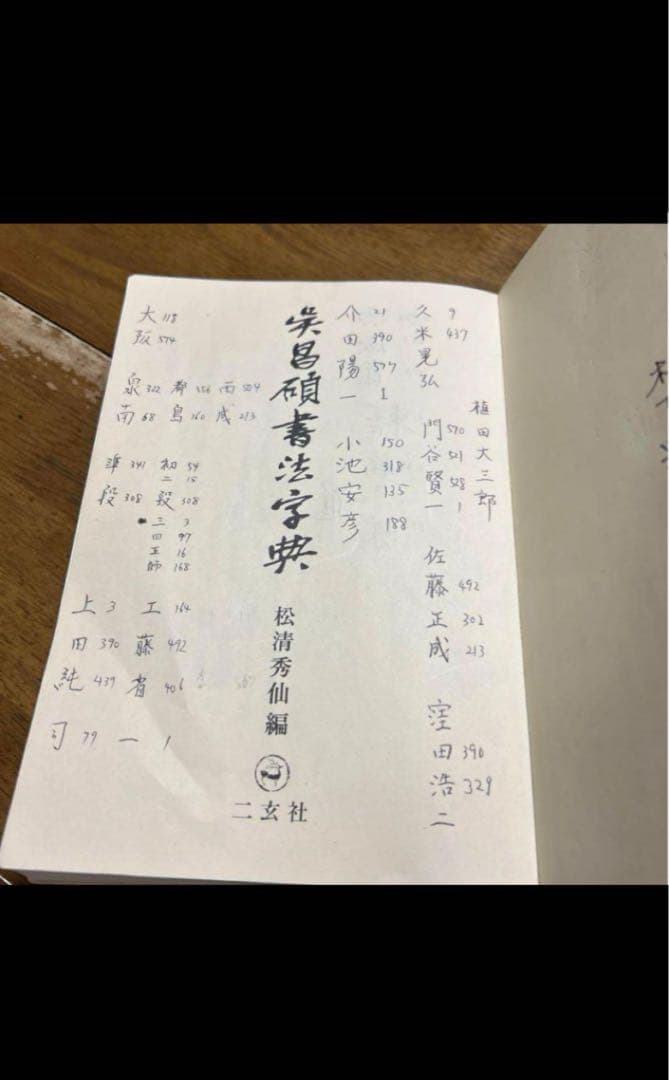 植田大三郎
久 9
米 437
晃
弘
門 570
谷 521
賢 528
一 1
佐
藤 492
正 302
成 213
窪
田 390
浩 329
二
介 21
田 390
陽 577
一 1
小 150
池 318
安 135
彦 188
呉昌碩書法字典
松清秀仙編
二玄社
大 118
阪 574
泉 322 都 556 西 504
南 68 島 160 成 213
準 341 初 54
二 15
段 308 毅 308
三 3
四 97
五 16
師 168
上 3 工 164
田 390 藤 492
純 439 省 406
司 79 一 1